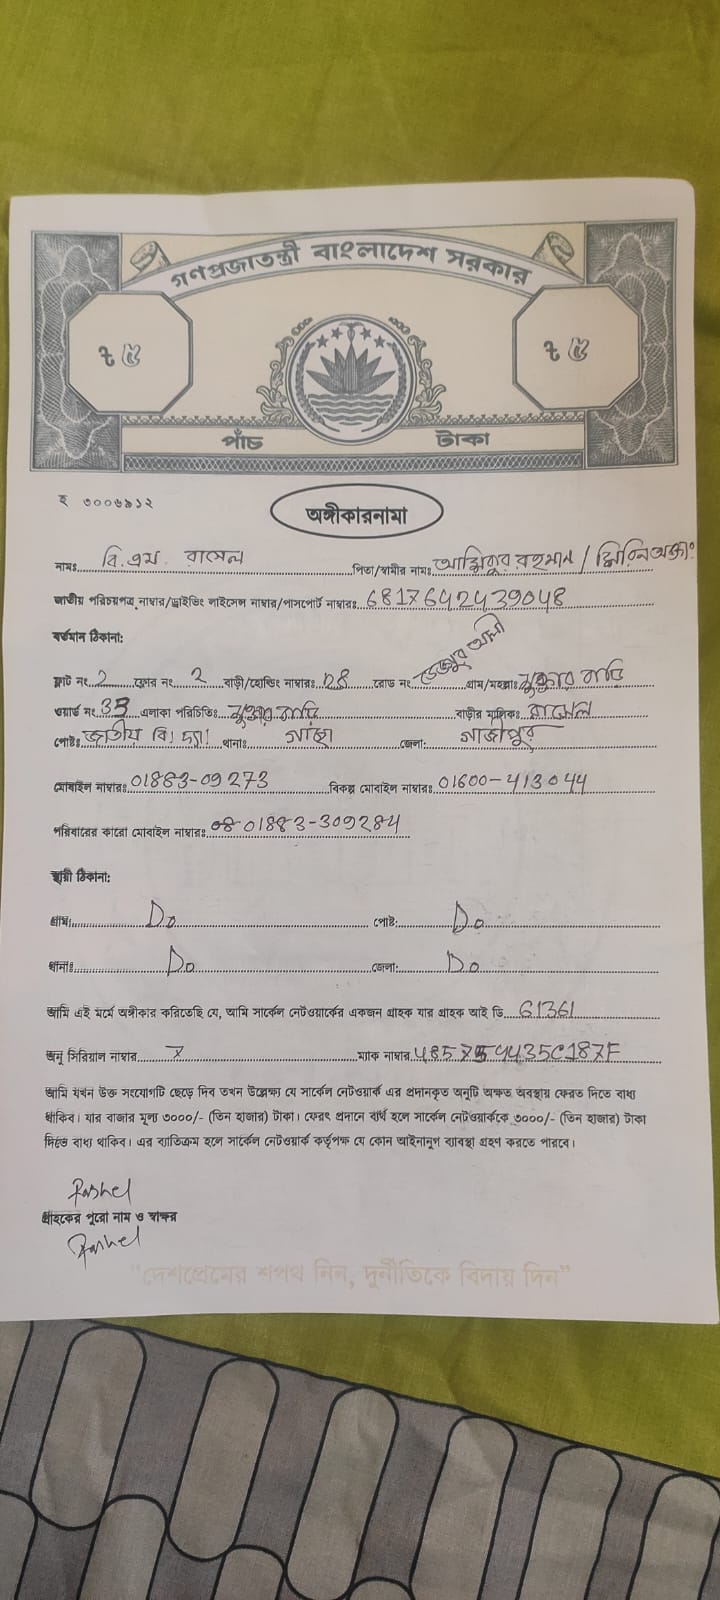 গণপ্রজাতন্ত্রী বাংলাদেশ সরকার
৳ ৫ ৳ ৫
পাঁচ টাকা
হ ৩০০৬৯১২
অঙ্গীকারনামা
নামঃ বি.এম. রাসেল পিতা/স্বামীর নামঃ রহমান /
জাতীয় পরিচয়পত্র নাম্বার/ড্রাইভিং লাইসেন্স নাম্বার/পাসপোর্ট নাম্বারঃ 6817642439048
বর্তমান ঠিকানা:
ফ্লাট নং 2 ফ্লোর নং 2 বাড়ী/হোল্ডিং নাম্বারঃ রোড নং আলী গ্রাম/মহল্লাঃ মুক্তার বাড়ি
ওয়ার্ড নং এলাকা পরিচিতিঃ মুক্তার বাড়ি বাড়ীর মালিকঃ রাসেল
পোষ্টঃ জাতীয় বি: দ্যা: থানাঃ গাছা জেলা: গাজীপুর
মোবাইল নাম্বারঃ 01883-09273 বিকল্প মোবাইল নাম্বারঃ 01600-413044
পরিবারের কারো মোবাইল নাম্বারঃ 01883-309284
স্থায়ী ঠিকানা:
গ্রাম Do পোষ্ট: Do
থানাঃ Do জেলা: Do
আমি এই মর্মে অঙ্গীকার করিতেছি যে, আমি সার্কেল নেটওয়ার্কের একজন গ্রাহক যার গ্রাহক আই ডি 61361
অনু সিরিয়াল নাম্বার ম্যাক নাম্বার
আমি যখন উক্ত সংযোগটি ছেড়ে দিব তখন উল্লেক্ষ্য যে সার্কেল নেটওয়ার্ক এর প্রদানকৃত অনুটি অক্ষত অবস্থায় ফেরত দিতে বাধ্য
থাকিব। যার বাজার মূল্য ৩০০০/- (তিন হাজার) টাকা। ফেরৎ প্রদানে ব্যর্থ হলে সার্কেল নেটওয়ার্ককে ৩০০০/- (তিন হাজার) টাকা
দিতে বাধ্য থাকিব। এর ব্যতিক্রম হলে সার্কেল নেটওয়ার্ক কর্তৃপক্ষ যে কোন আইনানুগ ব্যবস্থা গ্রহণ করতে পারবে।
Rashel
গ্রাহকের পুরো নাম ও স্বাক্ষর
Rashel
"দেশপ্রেমের শপথ নিন, দুর্নীতিকে বিদায় দিন"